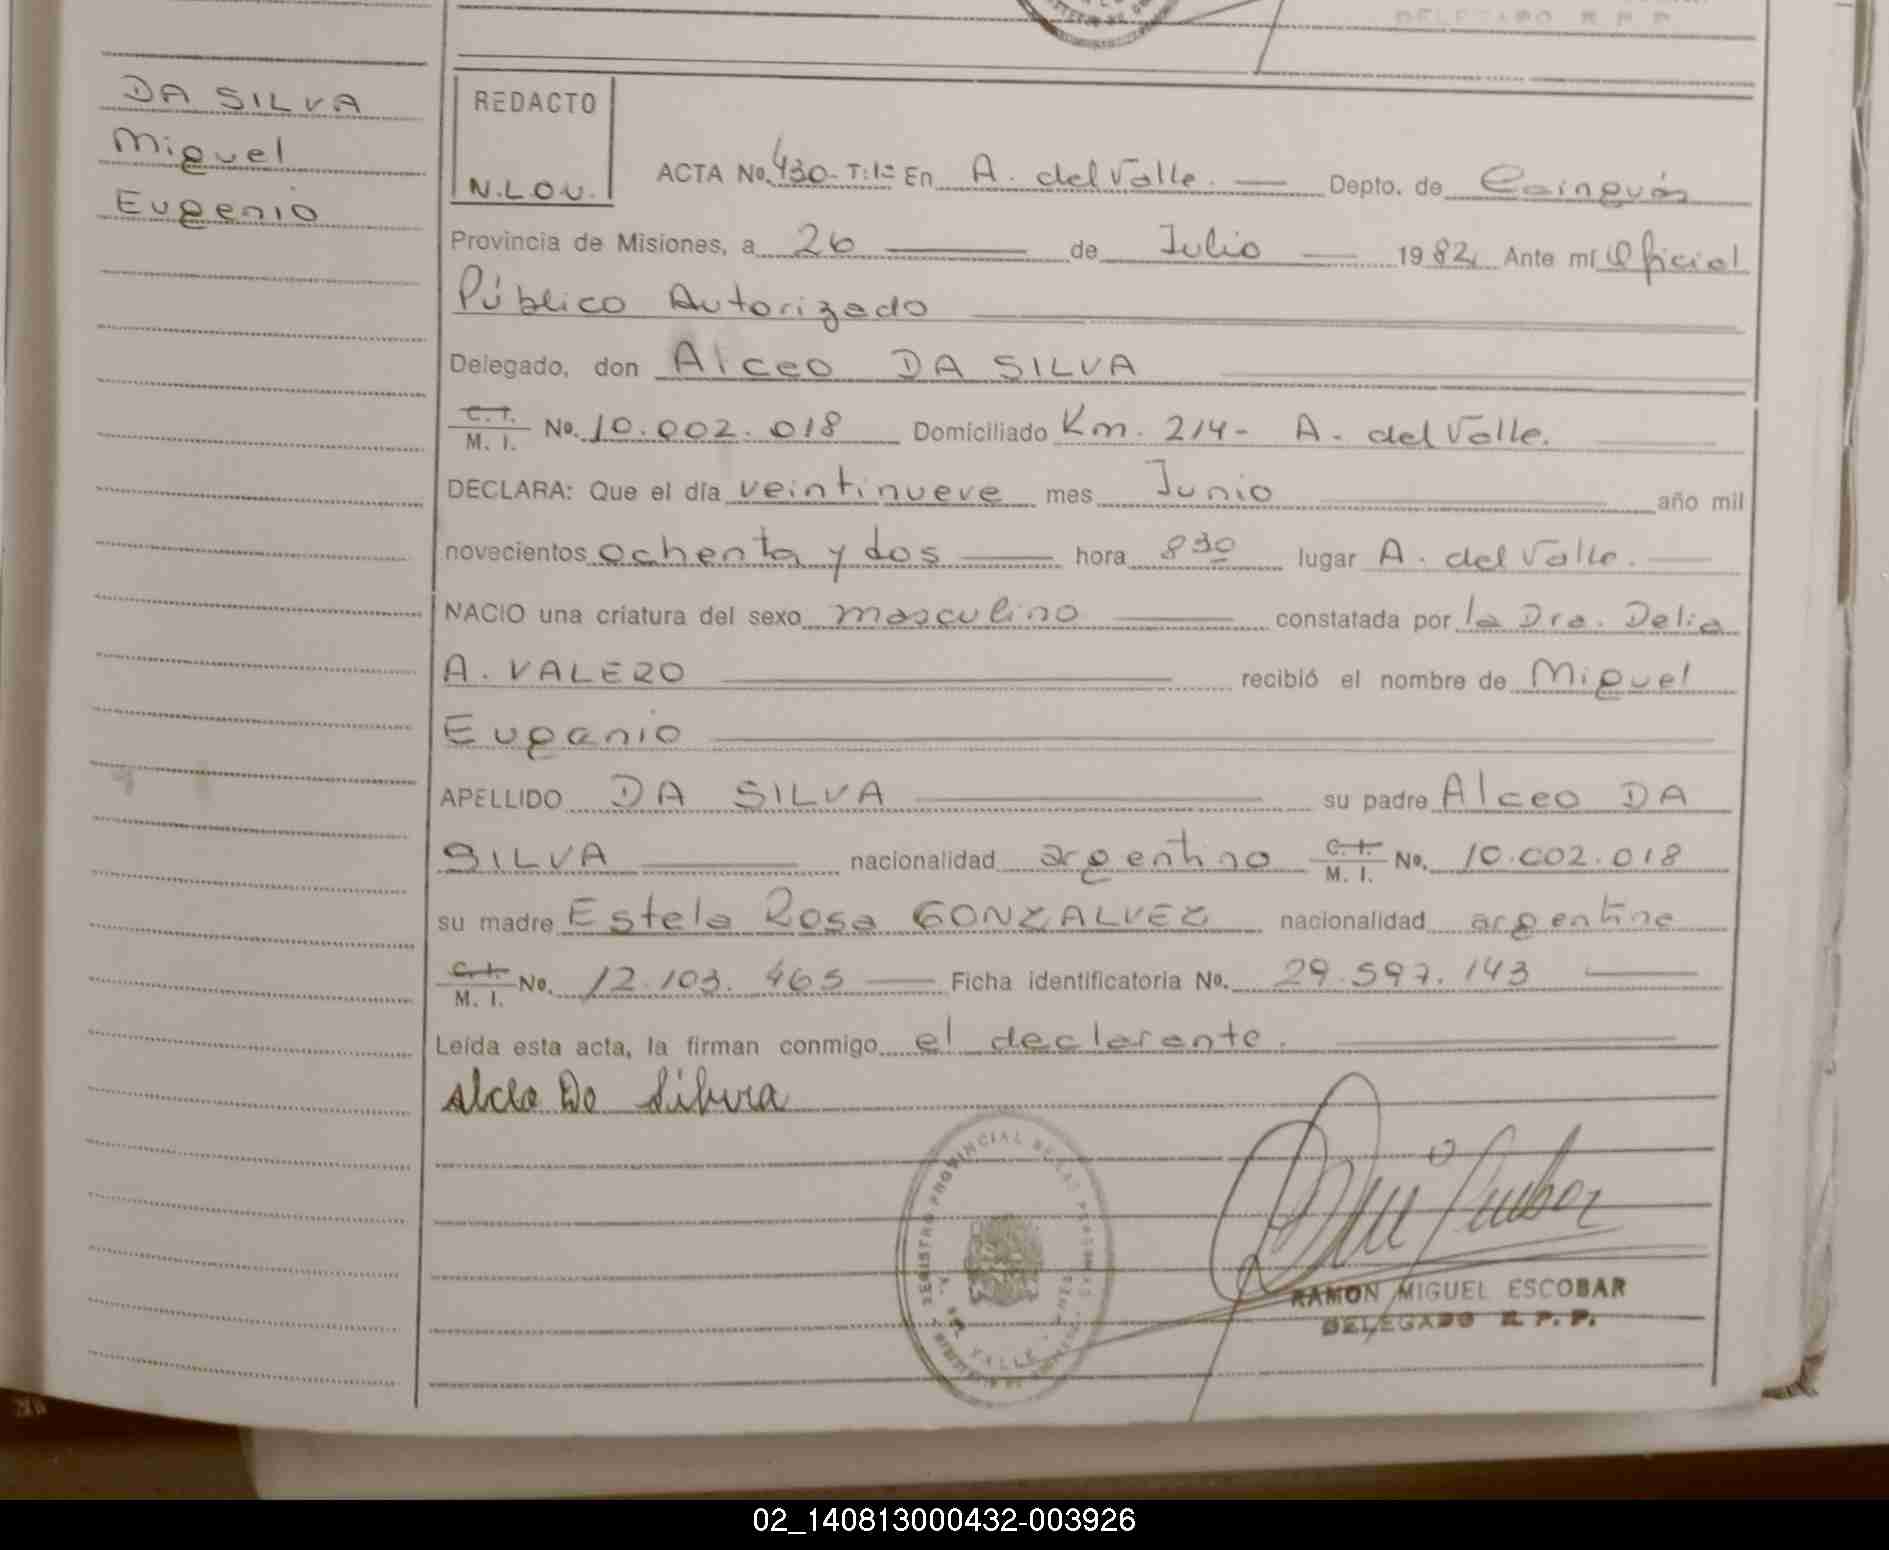 DELEGADO R. P. P.
DA SILVA
Miguel
Eugenio
REDACTO
N.L.O.U.
ACTA No. 430- T:1º En A. del Valle. — Depto. de Cainguás
Provincia de Misiones, a 26 — de Julio — 1982, Ante mí Oficial
Público Autorizado
Delegado, don Alceo DA SILVA
C. I. M. I. No. 10.002.018 Domiciliado Km. 214- A. del Valle.
DECLARA: Que el día veintinueve mes Junio año mil
novecientos ochenta y dos — hora 8 30 lugar A. del Valle. —
NACIO una criatura del sexo masculino — constatada por la Dra. Delia
A. VALERO — recibió el nombre de Miguel
Eugenio
APELLIDO DA SILVA — su padre Alceo DA
SILVA — nacionalidad argentino C. I. M. I. No. 10.002.018
su madre Estela Rosa GONZALVEZ nacionalidad argentina
C. I. M. I. No. 12.103.465 — Ficha identificatoria No. 29.597.143 —
Leída esta acta, la firman conmigo el declarante.
Alceo Da Silvra
REGISTRO PROVINCIAL DE LAS PERSONAS
A. DEL VALLE
RAMON MIGUEL ESCOBAR
DELEGADO R. P. P.
02_140813000432-003926